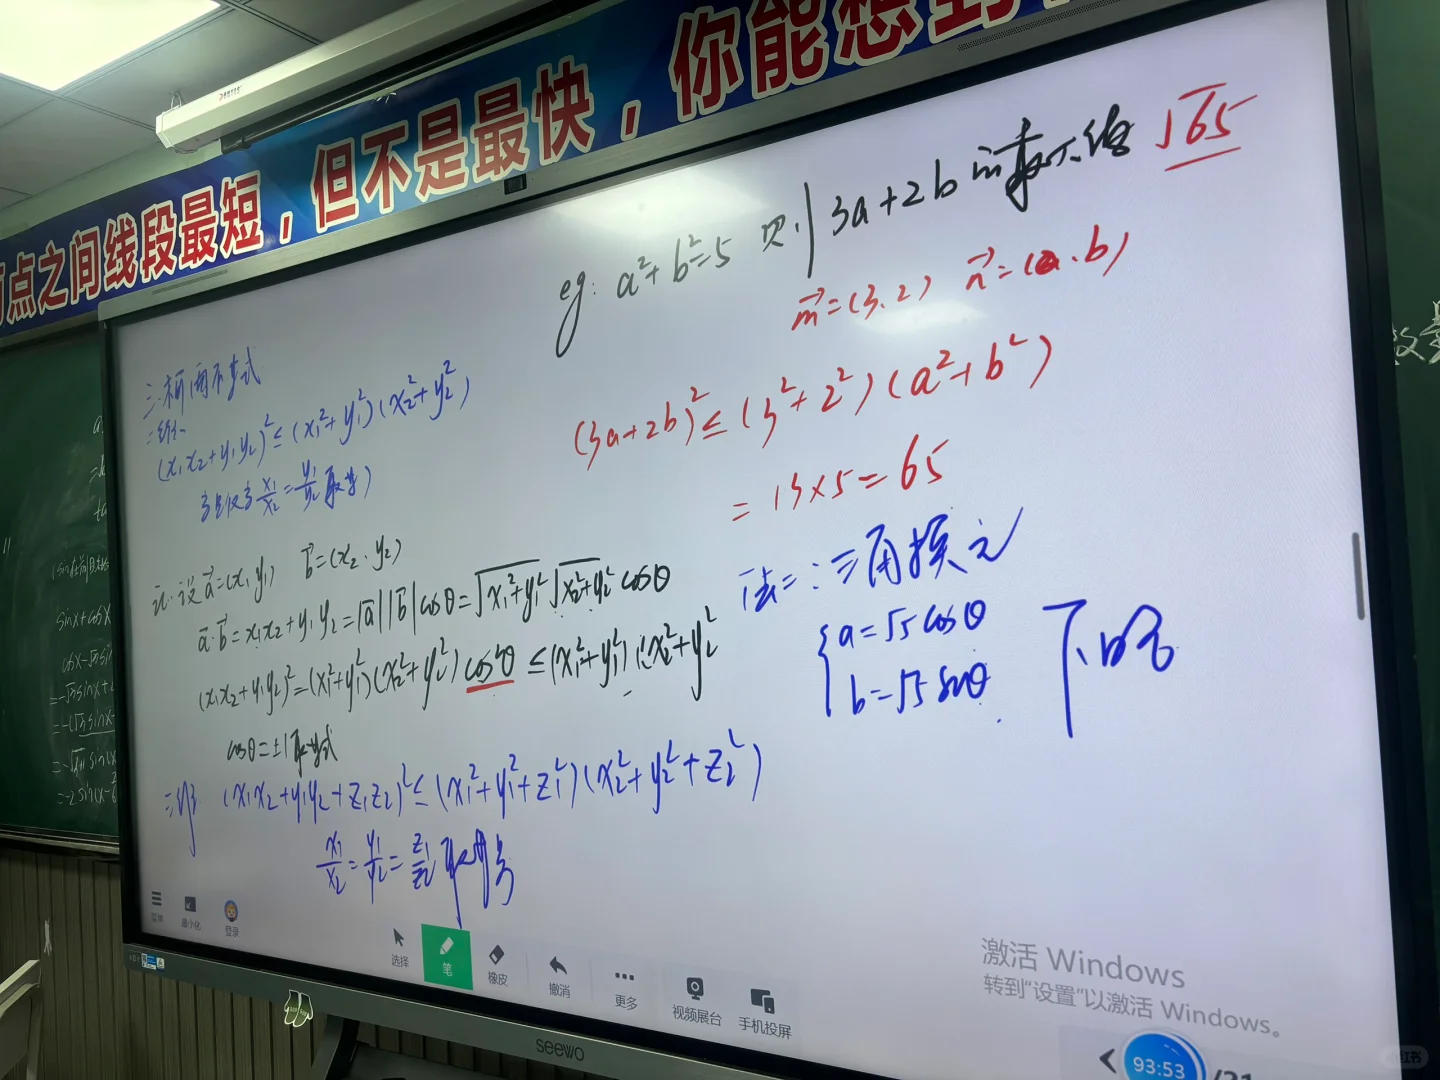 点之间线段最短,但不是最快,你能想到
eg: a²+b²=5 则 3a+2b的最大值 √65
m⃗=(3,2) n⃗=(a,b)
(3a+2b)²≤(3²+2²)(a²+b²)
=13×5=65
法二:三角换元
{a=√5cosθ
b=√5sinθ
下略
三.柯西不等式
二维
(x₁x₂+y₁y₂)²≤(x₁²+y₁²)(x₂²+y₂²)
当且仅当x₁/x₂=y₁/y₂取等)
证:设a⃗=(x₁y₁) b⃗=(x₂,y₂)
a⃗·b⃗=x₁x₂+y₁y₂=|a⃗||b⃗|cosθ=√x₁²+y₁²√x₂²+y₂²cosθ
(x₁x₂+y₁y₂)²=(x₁²+y₁²)(x₂²+y₂²)cos²θ≤(x₁²+y₁²)(x₂²+y₂²
cosθ=±1取等式
三维 (x₁x₂+y₁y₂+z₁z₂)²≤(x₁²+y₁²+z₁²)(x₂²+y₂²+z₂²)
x₁/x₂=y₁/y₂=z₁/z₂取等号
sinx+cosx
菜单 最小化 登录
选择 笔 橡皮 撤消 更多 视频展台 手机投屏
激活 Windows
转到“设置”以激活 Windows。
93:53
seewo